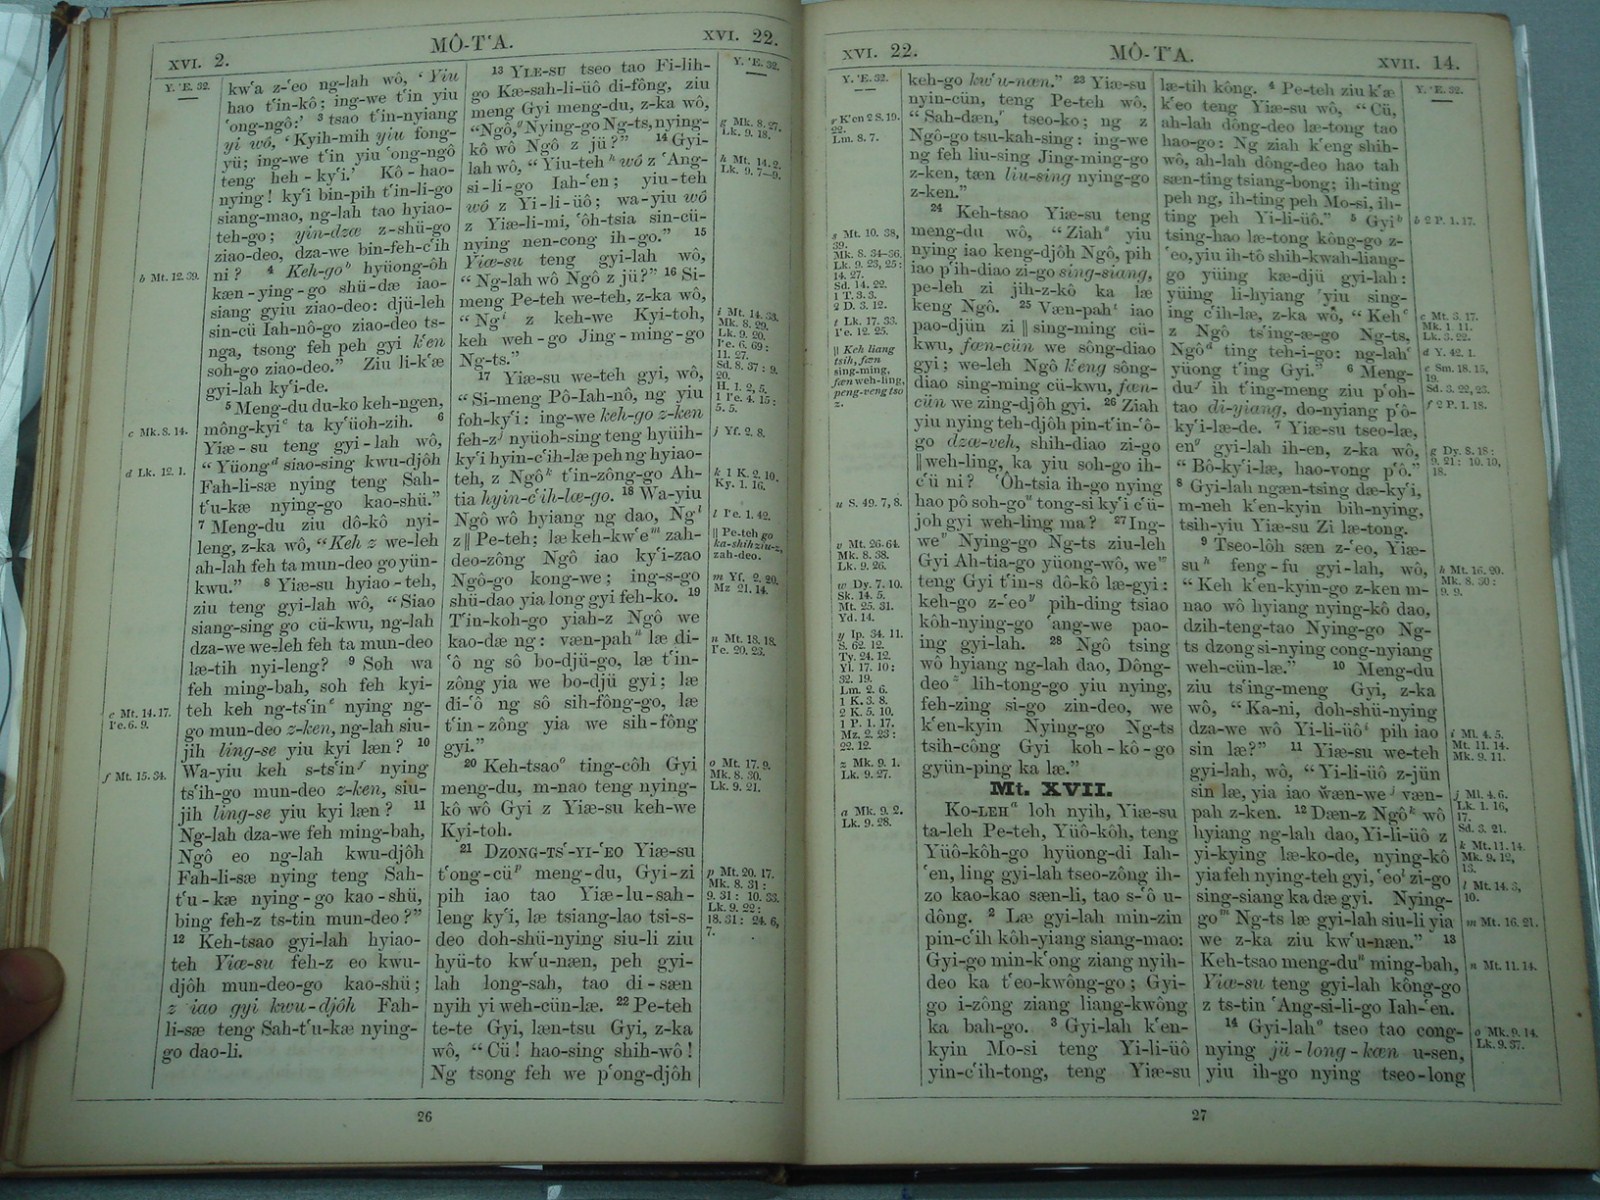 XVI. 2.
MÔ-TʻA.
XVI. 22.
Y. ʻE. 32.
kwʻa z-ʻeo ng-lah wô, ʻ Yiu
hao tʻin-kô; ing-we tʻin yiu
ʻong-ngô;ʼ ³ tsao tʻin-nyiang
yi wô, ʻ Kyih-mih yiu fong-
yü; ing-we tʻin yiu ʻong-ngô
teng heh-kyʻi.ʼ Kô-hao-
nying! kyʻi bin-pih tʻin-li-go
siang-mao, ng-lah tao hyiao-
teh-go; yin-dzæ z-shü-go
ziao-deo, dza-we bin-feh-cʻih
ni? ⁴ Keh-go ᵇ hyüong-ôh
kæn-ying-go shü-dæ iao-
siang gyiu ziao-deo: djü-leh
sin-cü Iah-nô-go ziao-deo ts-
nga, tsong feh peh gyi kʻen
soh-go ziao-deo.” Ziu li-kʻæ
gyi-lah kyʻi-de.
⁵ Meng-du du-ko keh-ngen,
mông-kyi ᶜ ta kyʻüoh-zih. ⁶
Yiæ-su teng gyi-lah wô,
“ Yüong ᵈ siao-sing kwu-djôh
Fah-li-sæ nying teng Sah-
tʻu-kæ nying-go kao-shü.”
⁷ Meng-du ziu dô-kô nyi-
leng, z-ka wô, “Keh z we-leh
ah-lah feh ta mun-deo go yün-
kwu.” ⁸ Yiæ-su hyiao-teh,
ziu teng gyi-lah wô, “ Siao
siang-sing go cü-kwu, ng-lah
dza-we we-leh feh ta mun-deo
læ-tih nyi-leng? ⁹ Soh wa
feh ming-bah, soh feh kyi-
teh keh ng-tsʻin ᵉ nying ng-
go mun-deo z-ken, ng-lah siu-
jih ling-se yiu kyi læn? ¹⁰
Wa-yiu keh s-tsʻin ᶠ nying
tsʻih-go mun-deo z-ken, siu-
jih ling-se yiu kyi læn? ¹¹
Ng-lah dza-we feh ming-bah,
Ngô eo ng-lah kwu-djôh
Fah-li-sæ nying teng Sah-
tʻu-kæ nying-go kao-shü,
bing feh-z ts-tin mun-deo?”
¹² Keh-tsao gyi-lah hyiao-
teh Yiæ-su feh-z eo kwu-
djôh mun-deo-go kao-shü;
z iao gyi kwu-djôh Fah-
li-sæ teng Sah-tʻu-kæ nying-
go dao-li.
b Mt. 12. 39.
c Mk. 8. 14.
d Lk. 12. 1.
e Mt. 14. 17.
Pe. 6. 9.
f Mt. 15. 34.
¹³ YIÆ-SU tseo tao Fi-lih-
go Kæ-sah-li-üô di-fông, ziu
meng Gyi meng-du, z-ka wô,
“Ngô, ᵍ Nying-go Ng-ts, nying-
kô wô Ngô z jü?” ¹⁴ Gyi-
lah wô, “ Yiu-teh ʰ wô z ʻAng-
si-li-go Iah-ʻen; yiu-teh
wô z Yi-li-üô; wa-yiu wô
z Yiæ-li-mi, ʻôh-tsia sin-cü-
nying nen-cong ih-go.” ¹⁵
Yiæ-su teng gyi-lah wô,
“ Ng-lah wô Ngô z jü?” ¹⁶ Si-
meng Pe-teh we-teh, z-ka wô,
“ Ng ⁱ z keh-we Kyi-toh,
keh weh-go Jing-ming-go
Ng-ts.”
¹⁷ Yiæ-su we-teh gyi, wô,
“ Si-meng Pô-Iah-nô, ng yiu
foh-kyʻi: ing-we keh-go z-ken
feh-z ʲ nyüoh-sing teng hyüih-
kyʻi hyin-cʻih-læ peh ng hyiao-
teh, z Ngô ᵏ tʻin-zông-go Ah-
tia hyin-cʻih-læ-go. ¹⁸ Wa-yiu
Ngô wô hyiang ng dao, Ng ˡ
z || Pe-teh; læ keh-kwʻe ᵐ zah-
deo-zông Ngô iao kyʻi-zao
Ngô-go kong-we; ing-s-go
shü-dao yia long gyi feh-ko. ¹⁹
Tʻin-koh-go yiah-z Ngô we
kao-dæ ng: væn-pah ⁿ læ di-
ʻô ng sô bo-djü-go, læ tʻin-
zông yia we bo-djü gyi; læ
di-ʻô ng sô sih-fông-go, læ
tʻin-zông yia we sih-fông
gyi.”
²⁰ Keh-tsao ᵒ ting-côh Gyi
meng-du, m-nao teng nying-
kô wô Gyi z Yiæ-su keh-we
Kyi-toh.
²¹ DZONG-TSʻ-YI-ʻEO Yiæ-su
tʻong-cü ᵖ meng-du, Gyi-zi
pih iao tao Yiæ-lu-sah-
leng kyʻi, læ tsiang-lao tsi-s-
deo doh-shü-nying siu-li ziu
hyü-to kwʻu-næn, peh gyi-
lah long-sah, tao di-sæn
nyih yi weh-cün-læ. ²² Pe-teh
te-te Gyi, læn-tsu Gyi, z-ka
wô, “ Cü! hao-sing shih-wô!
Ng tsong feh we pʻong-djôh
Y. ʻE. 32.
g Mk. 8. 27.
Lk. 9. 18.
h Mt. 14. 2.
Lk. 9. 7—9.
i Mt. 14. 33.
Mk. 8. 29.
Lk. 9. 20.
Pe. 6. 69:
11. 27.
Sd. 8. 37: 9.
20.
H. 1. 2, 5.
1 Pe. 4. 15:
5. 5.
j Yf. 2. 8.
k 1 K. 2. 10.
Ky. 1. 16.
l Pe. 1. 42.
|| Pe-teh go
ka-shih ziu-z
zah-deo.
m Yf. 2. 20.
Mz 21. 14.
n Mt. 18. 18.
Pe. 20. 23.
o Mt. 17. 9.
Mk. 8. 30.
Lk. 9. 21.
p Mt. 20. 17.
Mk. 8. 31:
9. 31: 10. 33.
Lk. 9. 22:
18. 31: 24. 6,
7.
26
XVI. 22.
MÔ-TʻA.
XVII. 14.
Y. ʻE. 32.
r Kʻen 2 S. 19.
22.
Lm. 8. 7.
s Mt. 10. 38,
39.
Mk. 8. 34—36.
Lk. 9. 23, 25:
14. 27.
Sd. 14. 22.
1 T. 3. 3.
2 D. 3. 12.
t Lk. 17. 33.
Pe. 12. 25.
|| Keh liang
tsih, fæn
sing-ming,
fæn weh-ling,
peng-veng tso
z.
u S. 49. 7, 8.
v Mt. 26. 64.
Mk. 8. 38.
Lk. 9. 26.
w Dy. 7. 10.
Sk. 14. 5.
Mt. 25. 31.
Yd. 14.
y Ip. 34. 11.
S. 62. 12.
Ty. 24. 12.
Yl. 17. 10:
32. 19.
Lm. 2. 6.
1 K. 3. 8.
2 K. 5. 10.
1 P. 1. 17.
Mz. 2. 23:
22. 12.
z Mk. 9. 1.
Lk. 9. 27.
a Mk. 9. 2.
Lk. 9. 28.
keh-go kwʻu-næn.” ²³ Yiæ-su
nyin-cün, teng Pe-teh wô,
“ Sah-dæn, ʳ tseo-ko; ng z
Ngô-go tsu-kah-sing: ing-we
ng feh liu-sing Jing-ming-go
z-ken, tæn liu-sing nying-go
z-ken.”
²⁴ Keh-tsao Yiæ-su teng
meng-du wô, “ Ziah ˢ yiu
nying iao keng-djôh Ngô, pih
iao pʻih-diao zi-go sing-siang,
pe-leh zi jih-z-kô ka læ
keng Ngô. ²⁵ Væn-pah ᵗ iao
pao-djün zi || sing-ming cü-
kwu, fæn-cün we sông-diao
gyi; we-leh Ngô kʻeng sông-
diao sing-ming cü-kwu, fæn-
cün we zing-djôh gyi. ²⁶ Ziah
yiu nying teh-djôh pin-tʻin-ʻô-
go dzæ-veh, shih-diao zi-go
|| weh-ling, ka yiu soh-go ih-
cʻü ni? ʻÔh-tsia ih-go nying
hao pô soh-go ᵘ tong-si kyʻi cʻü-
joh gyi weh-ling ma? ²⁷ Ing-
we ᵛ Nying-go Ng-ts ziu-leh
Gyi Ah-tia-go yüong-wô, we ʷ
teng Gyi tʻin-s dô-kô læ-gyi:
keh-go z-ʻeo ʸ pih-ding tsiao
kôh-nying-go ʻang-we pao-
ing gyi-lah. ²⁸ Ngô tsing
wô hyiang ng-lah dao, Dông-
deo ᶻ lih-tong-go yiu nying,
feh-zing si-go zin-deo, we
kʻen-kyin Nying-go Ng-ts
tsih-công Gyi koh-kô-go
gyün-ping ka læ.”
Mt. XVII.
KO-LEH ᵃ loh nyih, Yiæ-su
ta-leh Pe-teh, Yüô-kôh, teng
Yüô-kôh-go hyüong-di Iah-
ʻen, ling gyi-lah tseo-zông ih-
zo kao-kao sæn-li, tao s-ʻô u-
dông. ² Læ gyi-lah min-zin
pin-cʻih kôh-yiang siang-mao:
Gyi-go min-kʻong ziang nyih-
deo ka tʻeo-kwông-go; Gyi-
go i-zông ziang liang-kwông
ka bah-go. ³ Gyi-lah kʻen-
kyin Mo-si teng Yi-li-üô
yin-cʻih-tong, teng Yiæ-su
læ-tih kông. ⁴ Pe-teh ziu kʻæ
kʻeo teng Yiæ-su wô, “ Cü,
ah-lah dông-deo læ-tong tao
hao-go: Ng ziah kʻeng shih-
wô, ah-lah dông-deo hao tah
sæn-ting tsiang-bong; ih-ting
peh ng, ih-ting peh Mo-si, ih-
ting peh Yi-li-üô.” ⁵ Gyi ᵇ
tsing-hao læ-tong kông-go z-
ʻeo, yiu ih-tô shih-kwah-liang-
go yüing kæ-djü gyi-lah:
yüing li-hyiang ʻyiu sing-
ing cʻih-læ, z-ka wô, “ Keh ᶜ
z Ngô tsʻing-æ-go Ng-ts,
Ngô ᵈ ting teh-i-go: ng-lah ᵉ
yüong tʻing Gyi.” ⁶ Meng-
du ᶠ ih tʻing-meng ziu pʻoh-
tao di-yiang, do-nyiang pʻô-
kyʻi-læ-de. ⁷ Yiæ-su tseo-læ,
en ᵍ gyi-lah ih-en, z-ka wô,
“ Bô-kyʻi-læ, hao-vong pʻô.”
⁸ Gyi-lah ngæn-tsing dæ-kyʻi,
m-neh kʻen-kyin bih-nying,
tsih-yiu Yiæ-su Zi læ-tong.
⁹ Tseo-lôh sæn z-ʻeo, Yiæ-
su ʰ feng-fu gyi-lah, wô,
“ Keh kʻen-kyin-go z-ken m-
nao wô hyiang nying-kô dao,
dzih-teng-tao Nying-go Ng-
ts dzong si-nying cong-nyiang
weh-cün-læ.” ¹⁰ Meng-du
ziu tsʻing-meng Gyi, z-ka
wô, “ Ka-ni, doh-shü-nying
dza-we wô Yi-li-üô ⁱ pih iao
sin læ?” ¹¹ Yiæ-su we-teh
gyi-lah, wô, “ Yi-li-üô z-jün
sin læ, yia iao wæn-we ʲ væn-
pah z-ken. ¹² Dæn-z Ngô ᵏ wô
hyiang ng-lah dao, Yi-li-üô z
yi-kying læ-ko-de, nying-kô
yia feh nying-teh gyi, ʻeo ˡ zi-go
sing-siang ka dæ gyi. Nying-
go ᵐ Ng-ts læ gyi-lah siu-li yia
we z-ka ziu kwʻu-næn.” ¹³
Keh-tsao meng-du ⁿ ming-bah,
Yiæ-su teng gyi-lah kông-go
z ts-tin ʻAng-si-li-go Iah-ʻen.
¹⁴ Gyi-lah ᵒ tseo tao cong-
nying jü-long-kæn u-sen,
yiu ih-go nying tseo-long
Y. ʻE. 32.
b 2 P. 1. 17.
c Mt. 3. 17.
Mk. 1. 11.
Lk. 3. 22.
d Y. 42. 1.
e Sm. 18. 15,
19.
Sd. 3. 22, 23.
f 2 P. 1. 18.
g Dy. 8. 18:
9. 21: 10. 10,
18.
h Mt. 16. 20.
Mk. 8. 30:
9. 9.
i Ml. 4. 5.
Mt. 11. 14.
Mk. 9. 11.
j Ml. 4. 6.
Lk. 1. 16,
17.
Sd. 3. 21.
k Mt. 11. 14.
Mk. 9. 12,
13.
l Mt. 14. 3,
10.
m Mt. 16. 21.
n Mt. 11. 14.
o Mk. 9. 14.
Lk. 9. 37.
27